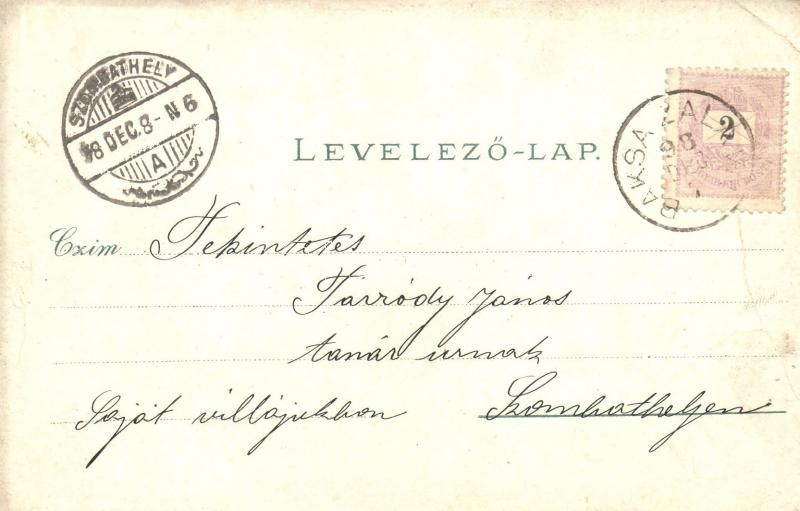 SZOMBATHELY
98 DEC. 8 - N 6
A
LEVELEZŐ-LAP.
BAKSA
98
DEC
2
Czim Tekintetes
Tarródy János
tanár urnak
Saját villájukban Szombathelyen